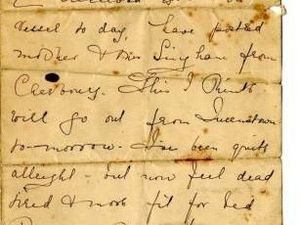 vessel to day, have posted
mother & Mrs Bingham from
Cherbourg. This I think
will go out from Queenstown
to-morrow. I've been quite
allright - but now feel dead
tired & more fit for bed